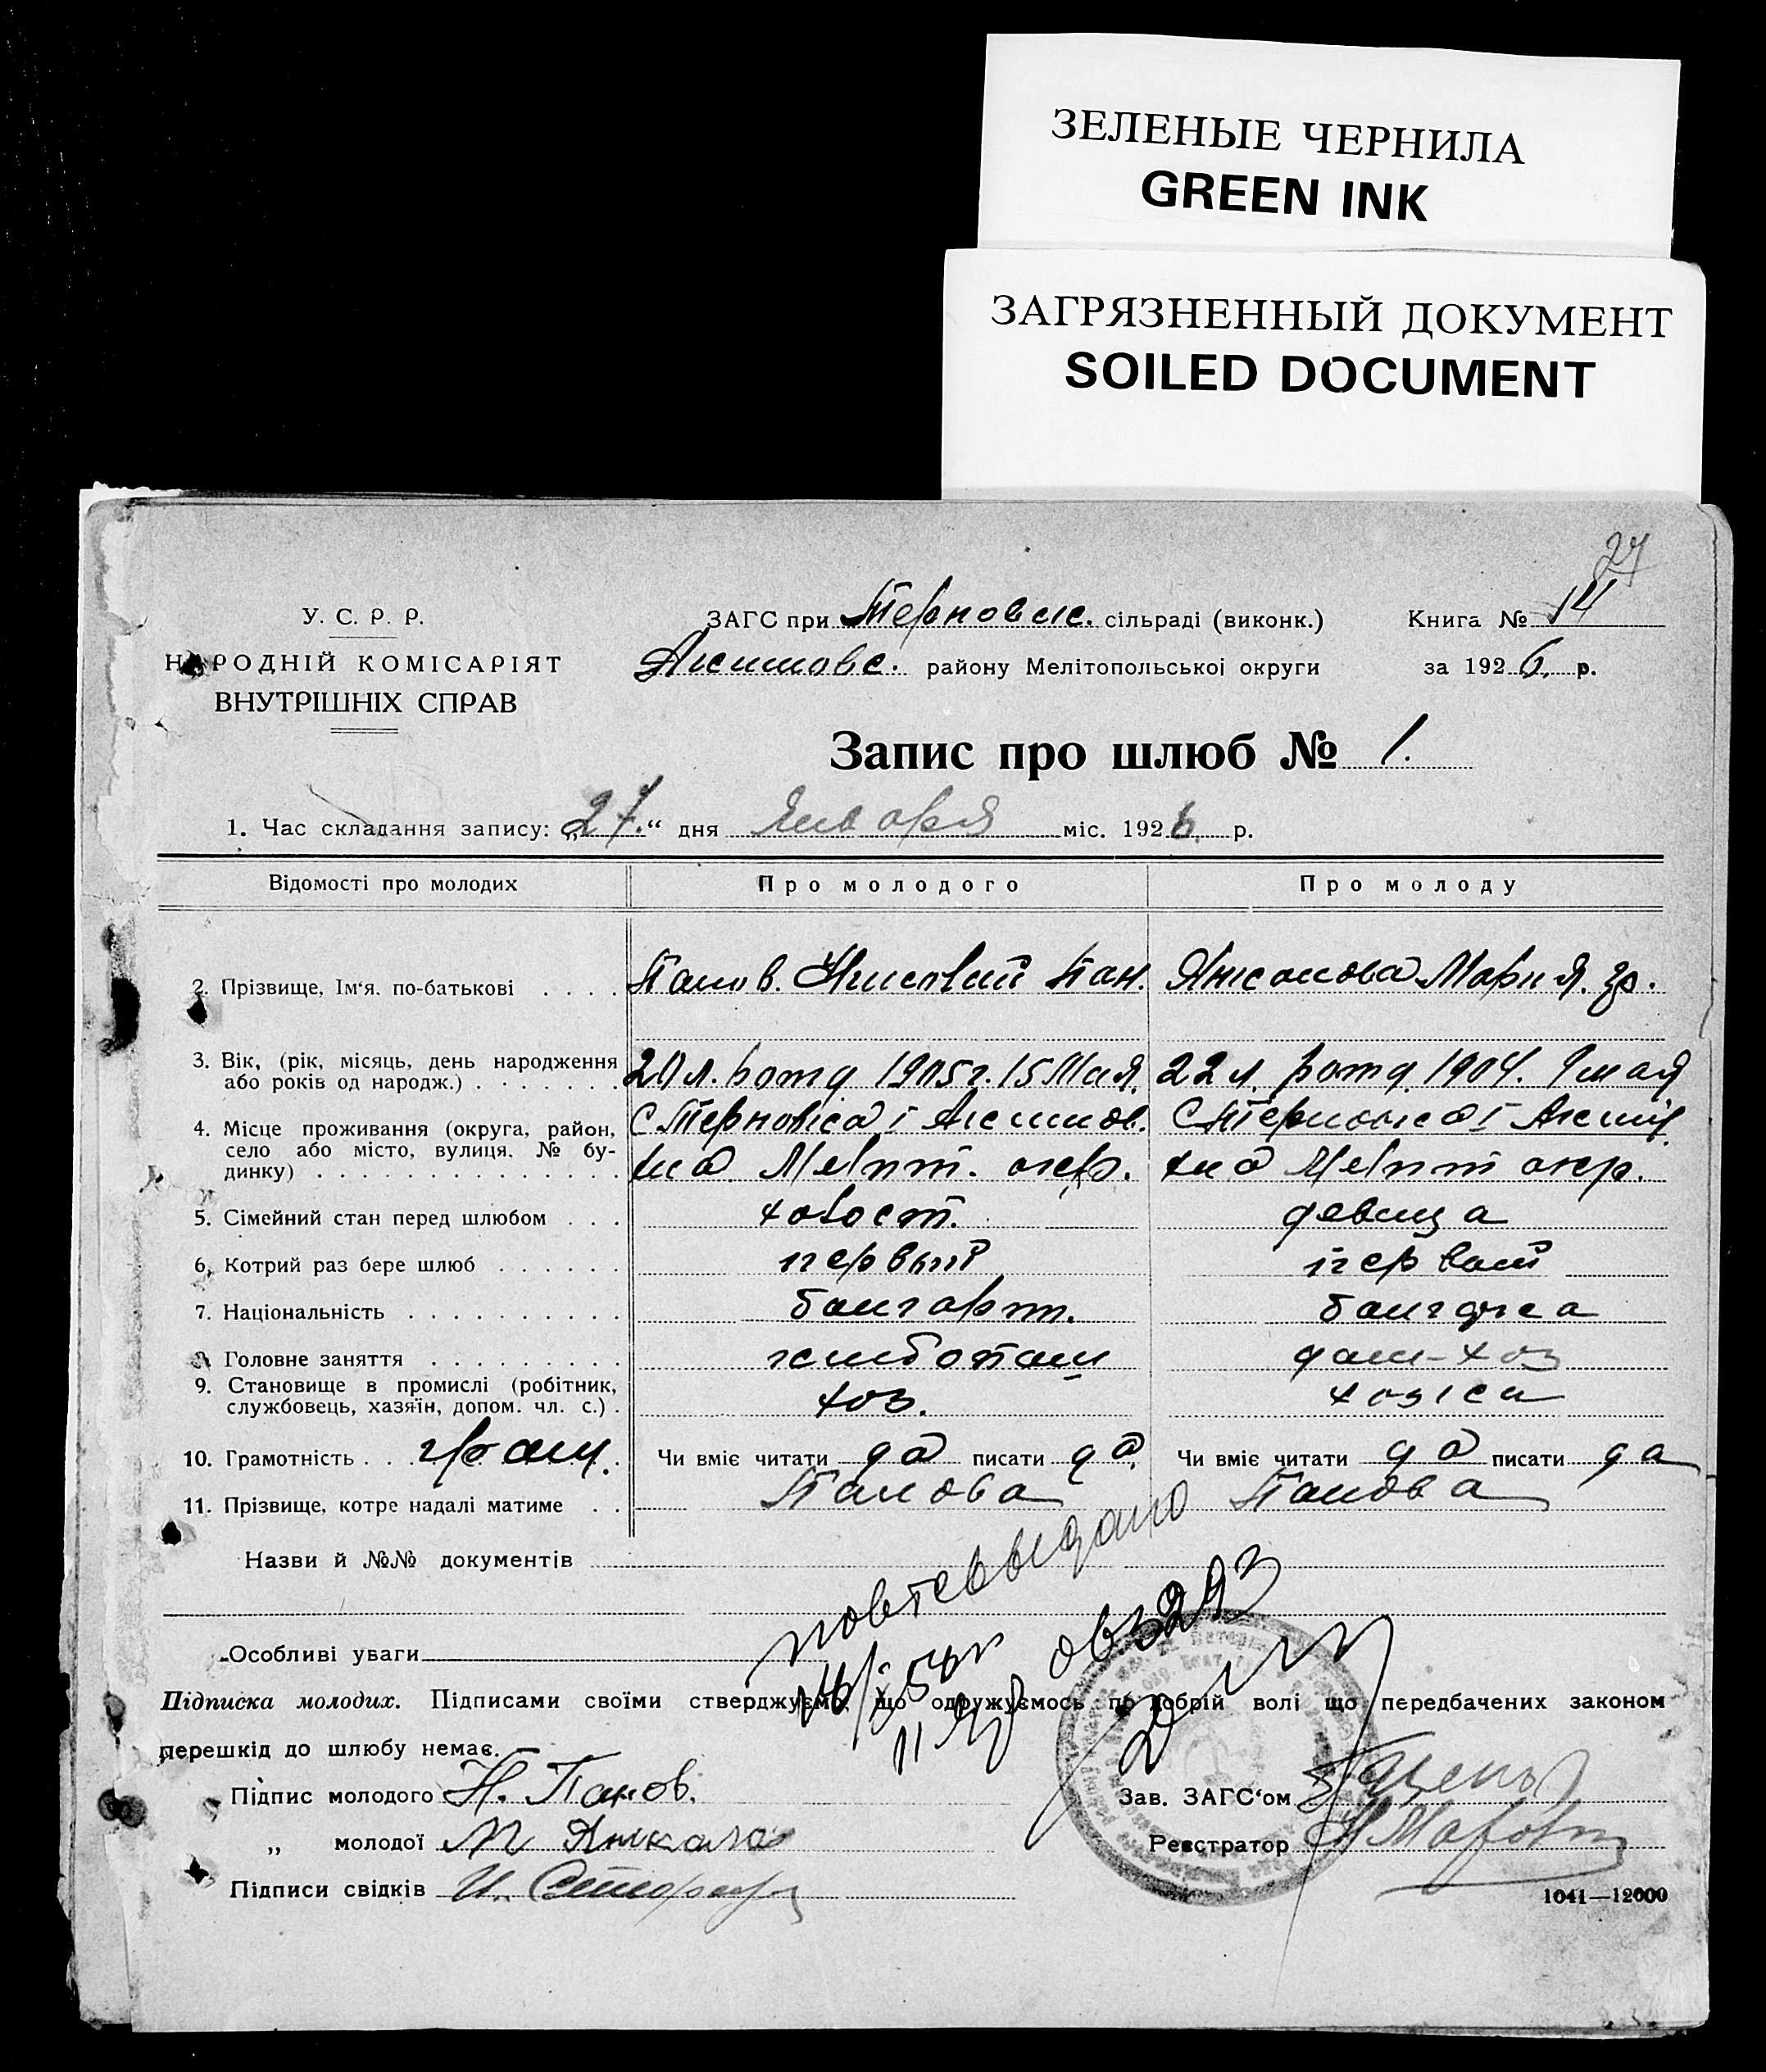 ЗЕЛЕНЫЕ ЧЕРНИЛА
GREEN INK
ЗАГРЯЗНЕННЫЙ ДОКУМЕНТ
SOILED DOCUMENT
27
У. С. Р. Р.
НАРОДНІЙ КОМІСАРІЯТ
ВНУТРІШНІХ СПРАВ
ЗАГС при Терновск. сільраді (виконк.)
Акимовс. району Мелітопольської округи
Книга № 14
за 1926. р.
Запис про шлюб № 1.
1. Час складання запису: „27.“ дня Января міс. 1926. р.
Відомості про молодих Про молодого Про молоду
2. Прізвище, Ім'я. по-батькові . . . . Панов. Николай Пан. Мария.
3. Вік, (рік, місяць, день народження 20 л. 1905 г. 15 Мая. 22 л. 1904. мая
або років од народж.) . . . . . . .
4. Місце проживання (округа, район, с Терновка Акимов. с Терновка
село або місто, вулиця. № бу- Мелит. окр. Мелит окр.
динку) . . . . . . . . . . . . . .
5. Сімейний стан перед шлюбом . . . холост. девица
6. Котрий раз бере шлюб . . . . . . первый первый
7. Національність . . . . . . . . . . болгарин. болгарка
8. Головне заняття . . . . . . . . . хлебопаш дом-хоз
9. Становище в промислі (робітник, хоз. хозяка
службовець, хазяїн, допом. чл. с.) .
10. Грамотність . . . грам. Чи вміє читати да писати да. Чи вміє читати да писати да
11. Прізвище, котре надалі матиме . . Панова Панова
Назви й №№ документів
повт св выдано
Особливі уваги
Підписка молодих. Підписами своїми стверджуємо, що одружуємось по добрій волі що передбачених законом
перешкід до шлюбу немає.
Підпис молодого Н. Панов.
Зав. ЗАГС'ом
„ молодої М
Реєстратор
Підписи свідків И.
1041—12000